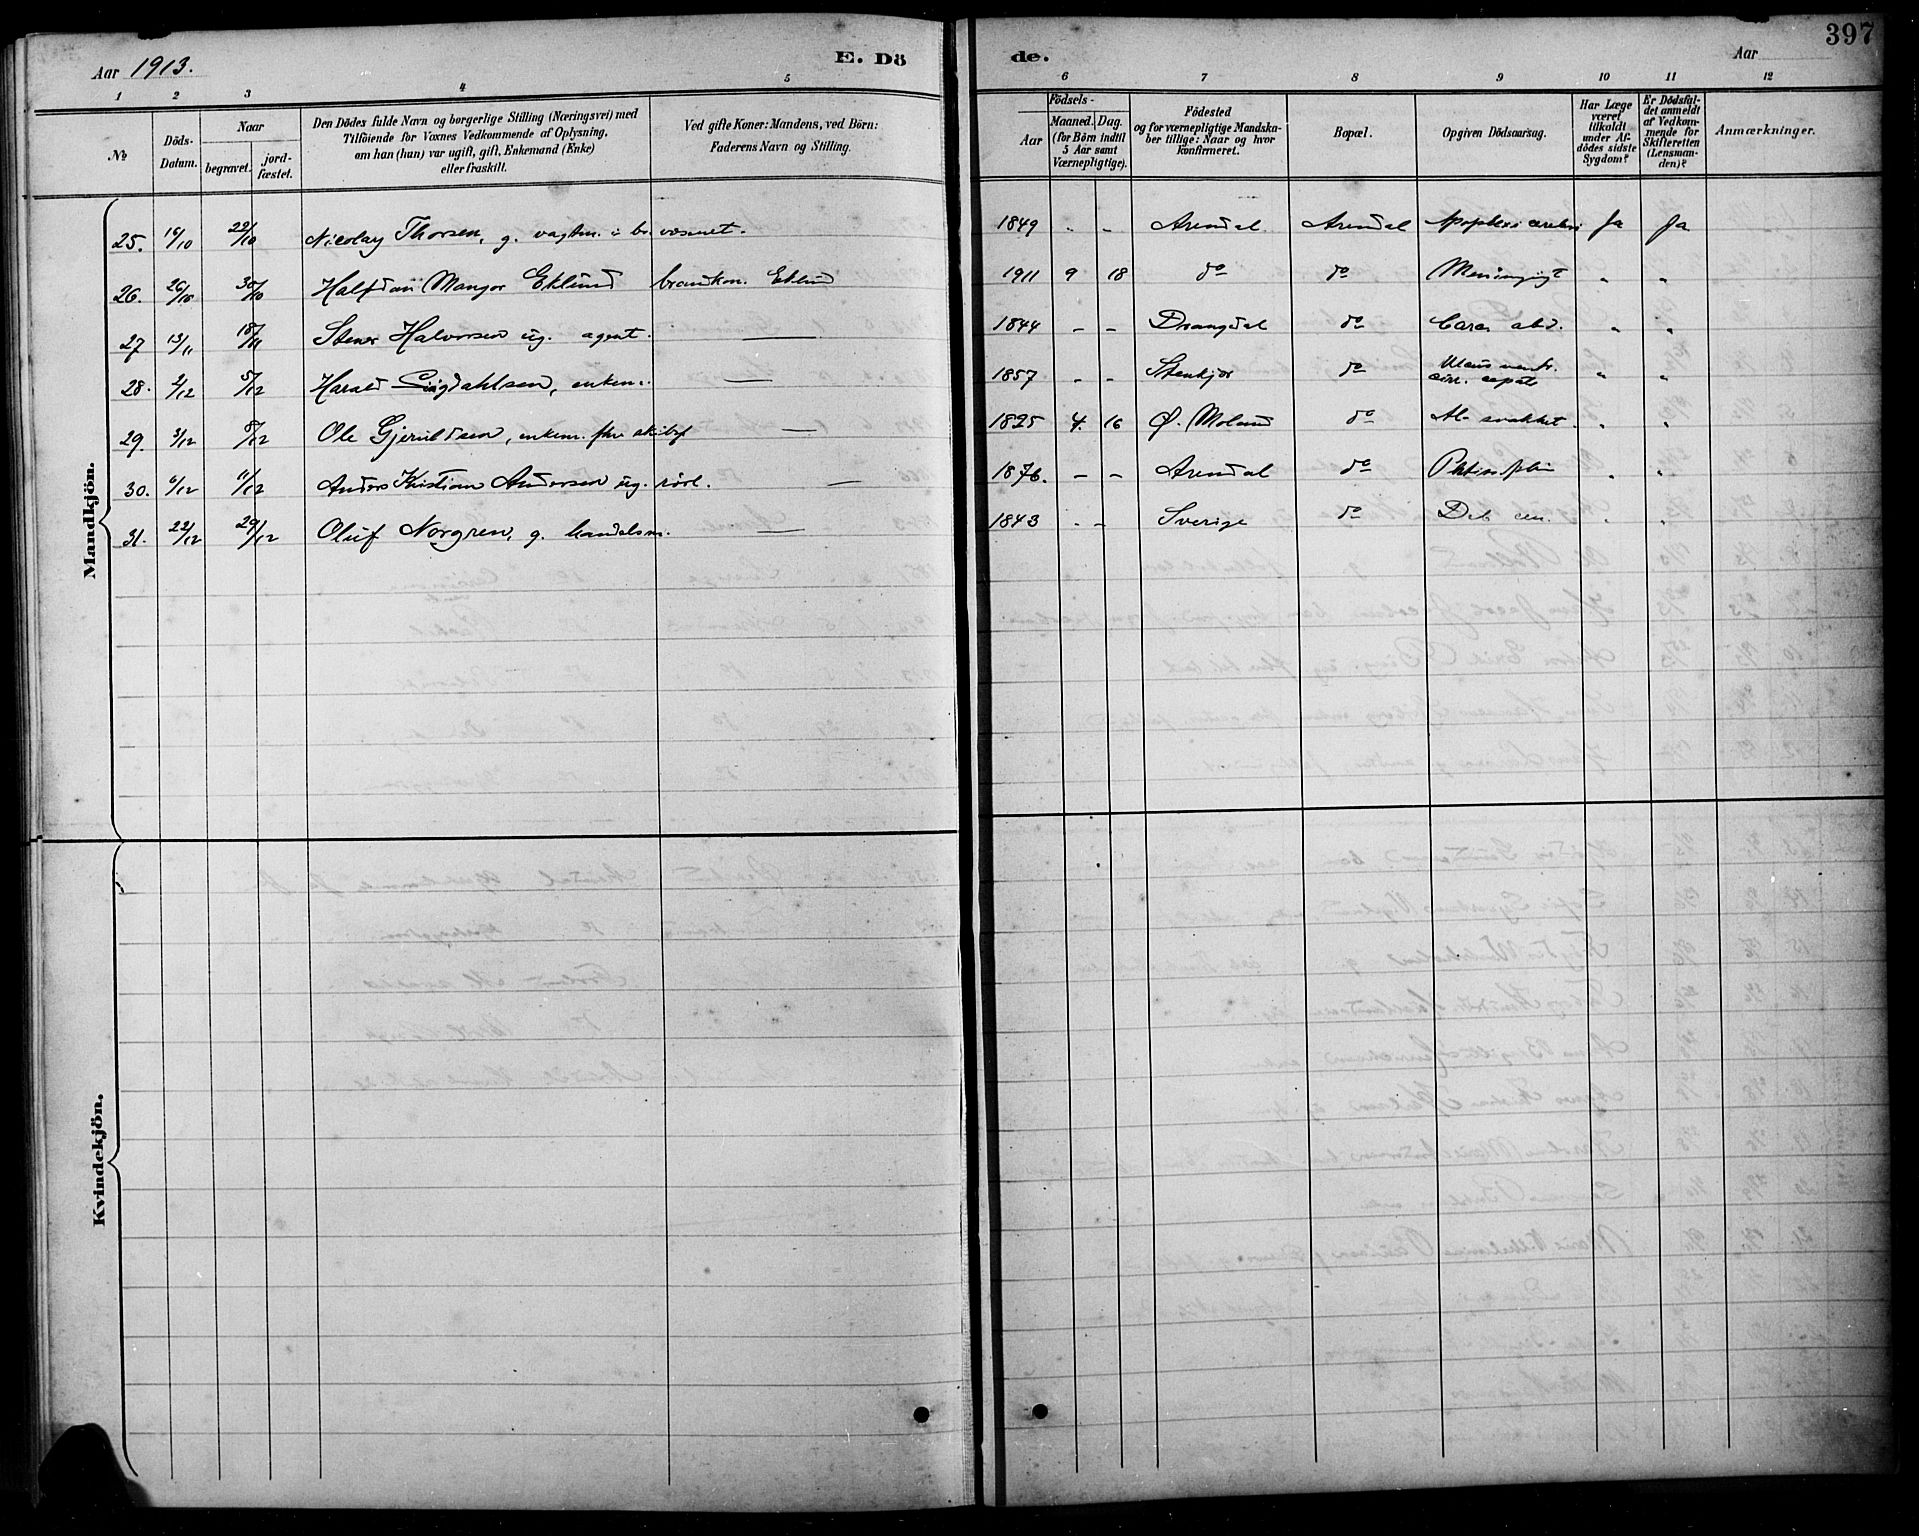 397
Aar 1913.
E. Dö
de.
Aar
1 2 3 4 5 6 7 8 9 10 11 12
№
Döds-
Datum.
Naar
begravet.
jord-
fæstet.
Den Dödes fulde Navn og borgerlige Stilling (Næringsvei) med
Tilföiende for Voxnes Vedkommende af Oplysning,
om han (hun) var ugift, gift, Enkemand (Enke)
eller fraskilt.
Ved gifte Koner: Mandens, ved Börn:
Faderens Navn og Stilling.
Födsels-
Aar
Maaned. Dag.
(for Börn indtil
5 Aar samt
Værnepligtige).
Födested
og for værnepligtige Mandska-
ber tillige: Naar og hvor
konfirmeret.
Bopæl.
Opgiven Dödsaarsag.
Har Læge
været
tilkaldt
under Af-
dödes sidste
Sygdom?
Er Dödsfal-
det anmeldt
af Vedkom-
mende for
Skifteretten
(Lensman-
den)?
Anmærkninger.
Mandkjön.
25. 16/10 22/10 Nicolay Thorsen, g. vagtm. i br.væsnet. 1849 - - Arendal Arendal Apoplexi cerebri Ja Ja
26. 26/10 30/10 Halfdan Mangor Eklund brandkon. Eklund 1911 9 18 do do " "
27 13/11 18/11 Stener Halvorsen ug. agent. — 1844 - - Drangdal do Carc. abd. " "
28. 2/12 5/12 Harald Sigdahlsen, enkem. — 1857 - - Stenkjær do Ulcus ventr.
cirr. hepatis " "
29. 3/12 8/12 Ole Gjeruldsen, enkem. fhv skibsf — 1825 4. 16 Ø. Moland do Al. svakhet. " "
30. 6/12 11/12 Anders Kristian Andersen ug. rörl. — 1876. - - Arendal do " "
31. 22/12 29/12 Oluf Norgren, g. handelsm. — 1843 - - Sverige do Deb. sen. " "
Kvindekjön.